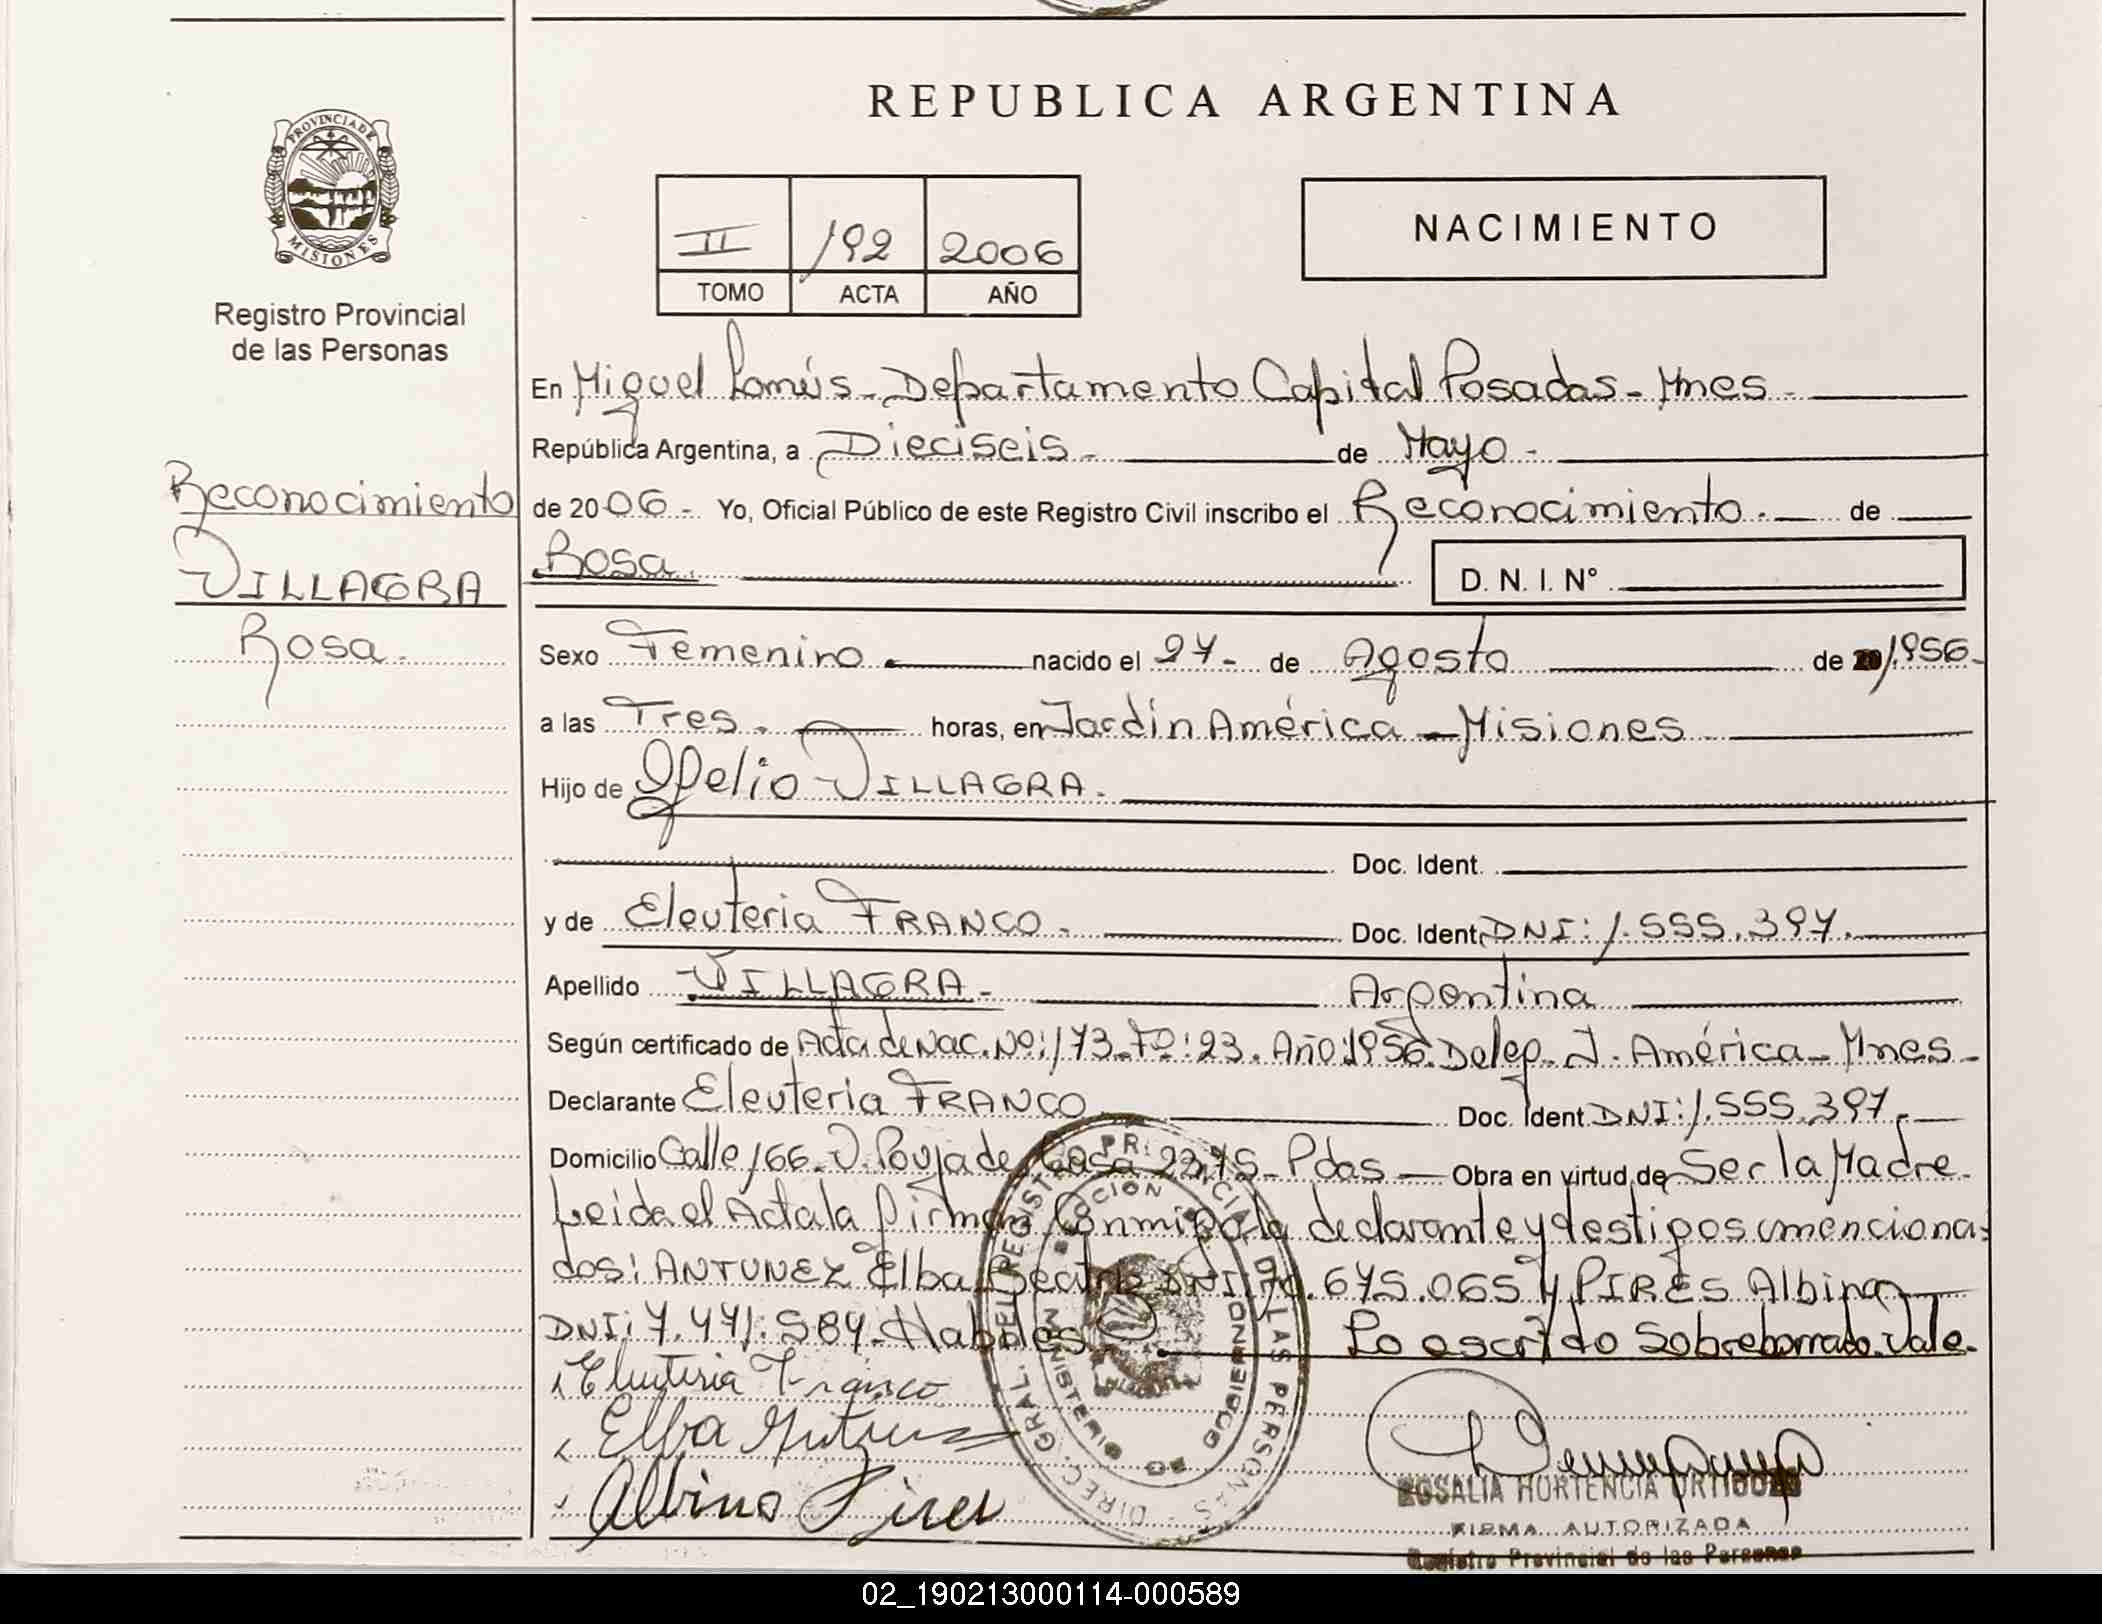 REPUBLICA ARGENTINA
PROVINCIA DE
MISIONES
Registro Provincial
de las Personas
II 192 2006
TOMO ACTA AÑO
NACIMIENTO
En Miguel Lanús - Departamento Capital Posadas - Mnes -
República Argentina, a Dieciseis - de Mayo -
Reconocimiento
VILLAGRA
Rosa.
de 2006 - Yo, Oficial Público de este Registro Civil inscribo el Reconocimiento. de
Rosa. D. N. I. N°
Sexo Femenino nacido el 27 - de Agosto de 20 1.956 -
a las Tres. horas, en Jardín América - Misiones
Hijo de Ofelio VILLAGRA.
Doc. Ident.
y de Eleuteria FRANCO - Doc. Ident. DNI: 1.555.397.
Apellido VILLAGRA - Argentina
Según certificado de Acta de Nac. Nº: 173. Tº: 23. Año: 1956. Deleg. J. América - Mnes -
Declarante Eleuteria FRANCO Doc. Ident. DNI: 1.555.397 -
Domicilio Calle 166. Casa 2275 - Pdas - Obra en virtud de Ser la Madre.
Leida el Acta la firman Conmigo la declarante y testigos menciona-
dos: ANTUNEZ Elba Beatriz DNI: 10.675.065 y PIRES Albino
DNI: 7.471.584 - Habiles Lo escrito Sobreborrado. Vale -
Eleuteria Franco
Elba Antunez
Albino Pires
DIREC. GRAL. DEL REGISTRO PROVINCIAL DE LAS PERSONAS
MINISTERIO DE GOBIERNO
ROSALIA HORTENCIA
FIRMA AUTORIZADA
Registro Provincial de las Personas
02_190213000114-000589